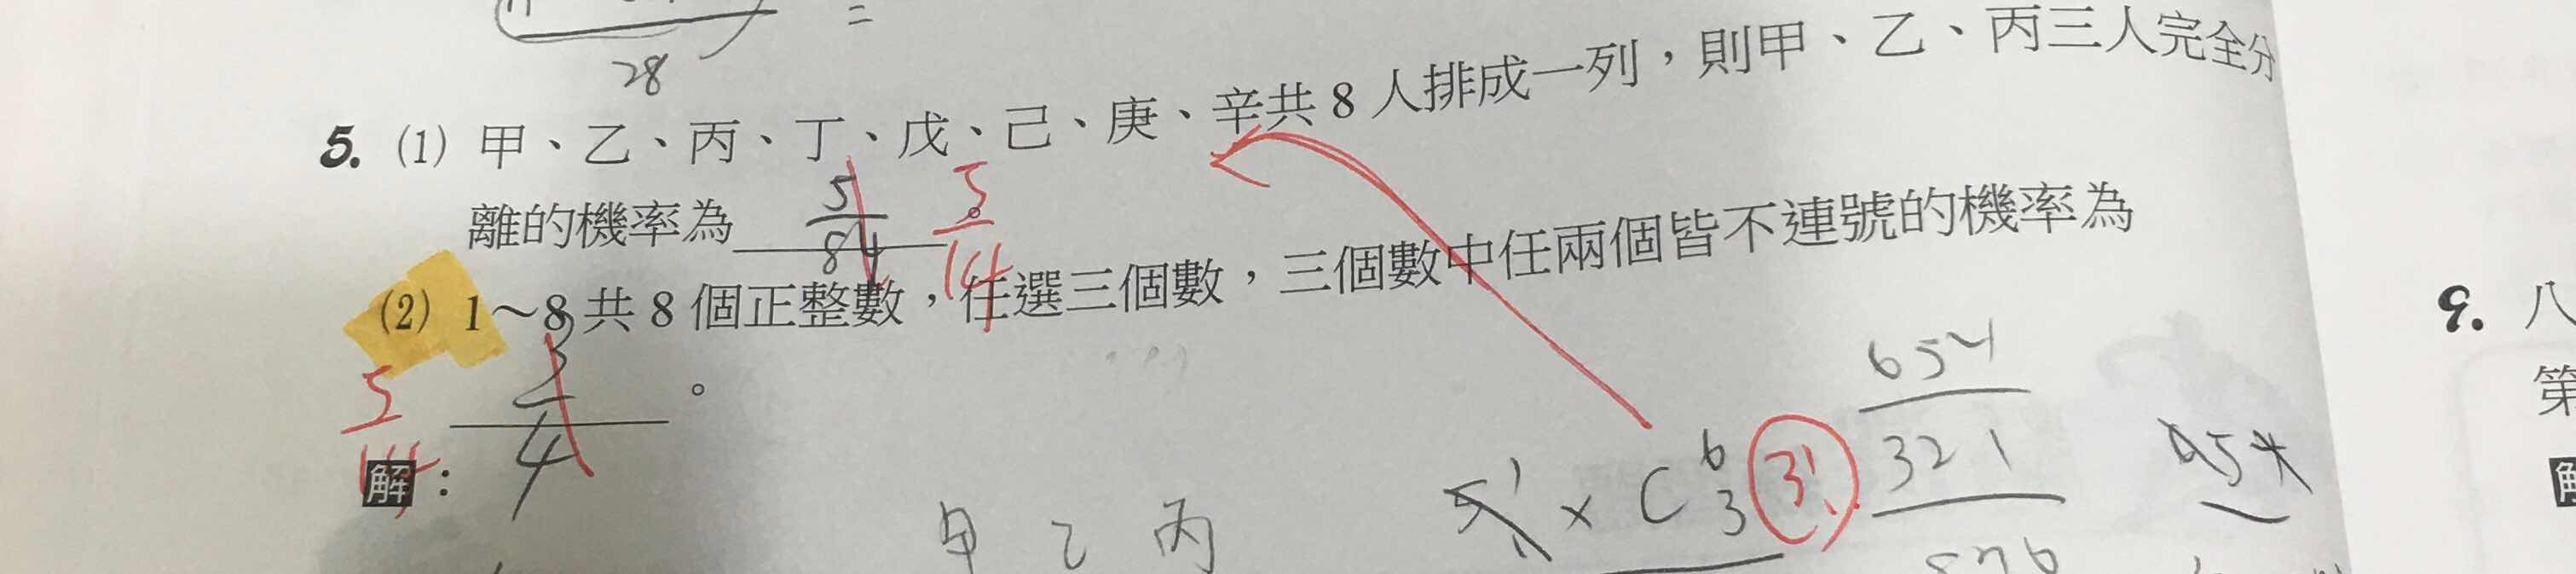 =
28
5. (1) 甲、乙、丙、丁、戊、己、庚、辛共 8 人排成一列，則甲、乙、丙三人完全分
離的機率為 5/84 。 5/14
(2) 1～8 共 8 個正整數，任選三個數，三個數中任兩個皆不連號的機率為
5/14 3/4 。
解：
甲 乙 丙
5! × C 6 3 3!
654
321
876
654
9. 八
第
解